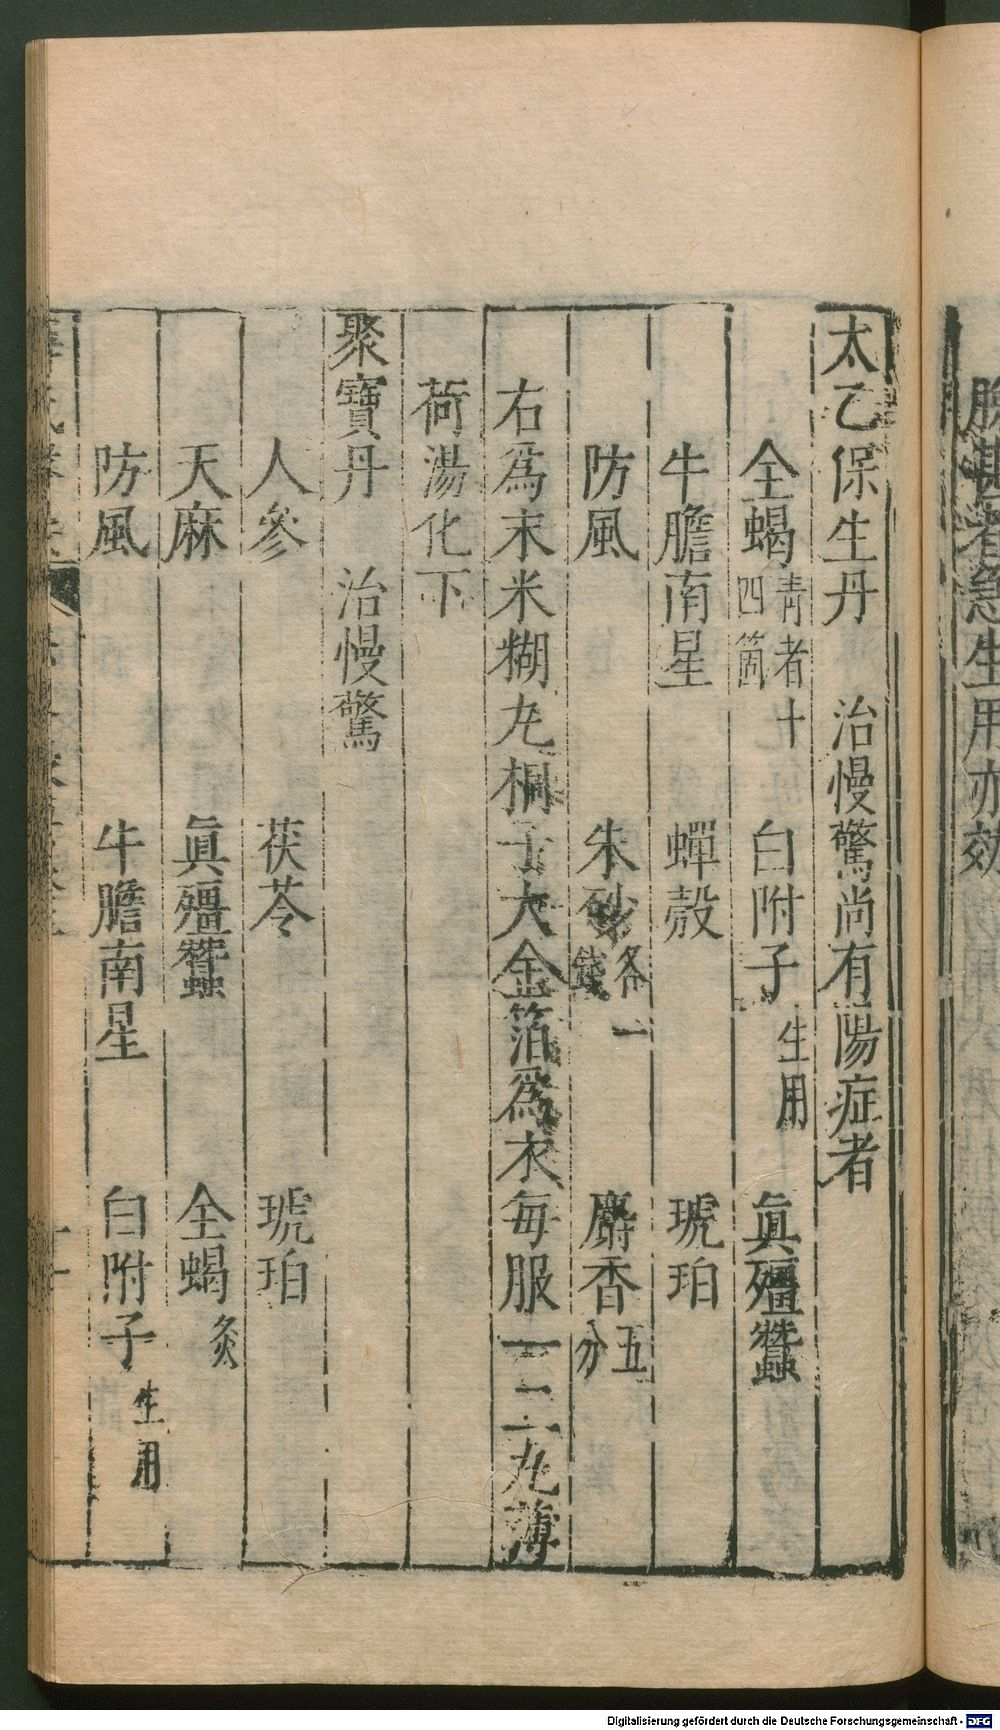 太乙保生丹　治慢驚尚有陽症者
全蝎青者十四箇　白附子生用　眞殭蠶
牛膽南星　蟬殼　琥珀
防風　朱砂各一錢　麝香五分
右爲末米糊丸桐子大金箔爲衣每服一二丸薄
荷湯化下
聚寶丹　治慢驚
人參　茯苓　琥珀
天麻　眞殭蠶　全蝎炙
防風　牛膽南星　白附子生用
Digitalisierung gefördert durch die Deutsche Forschungsgemeinschaft - DFG